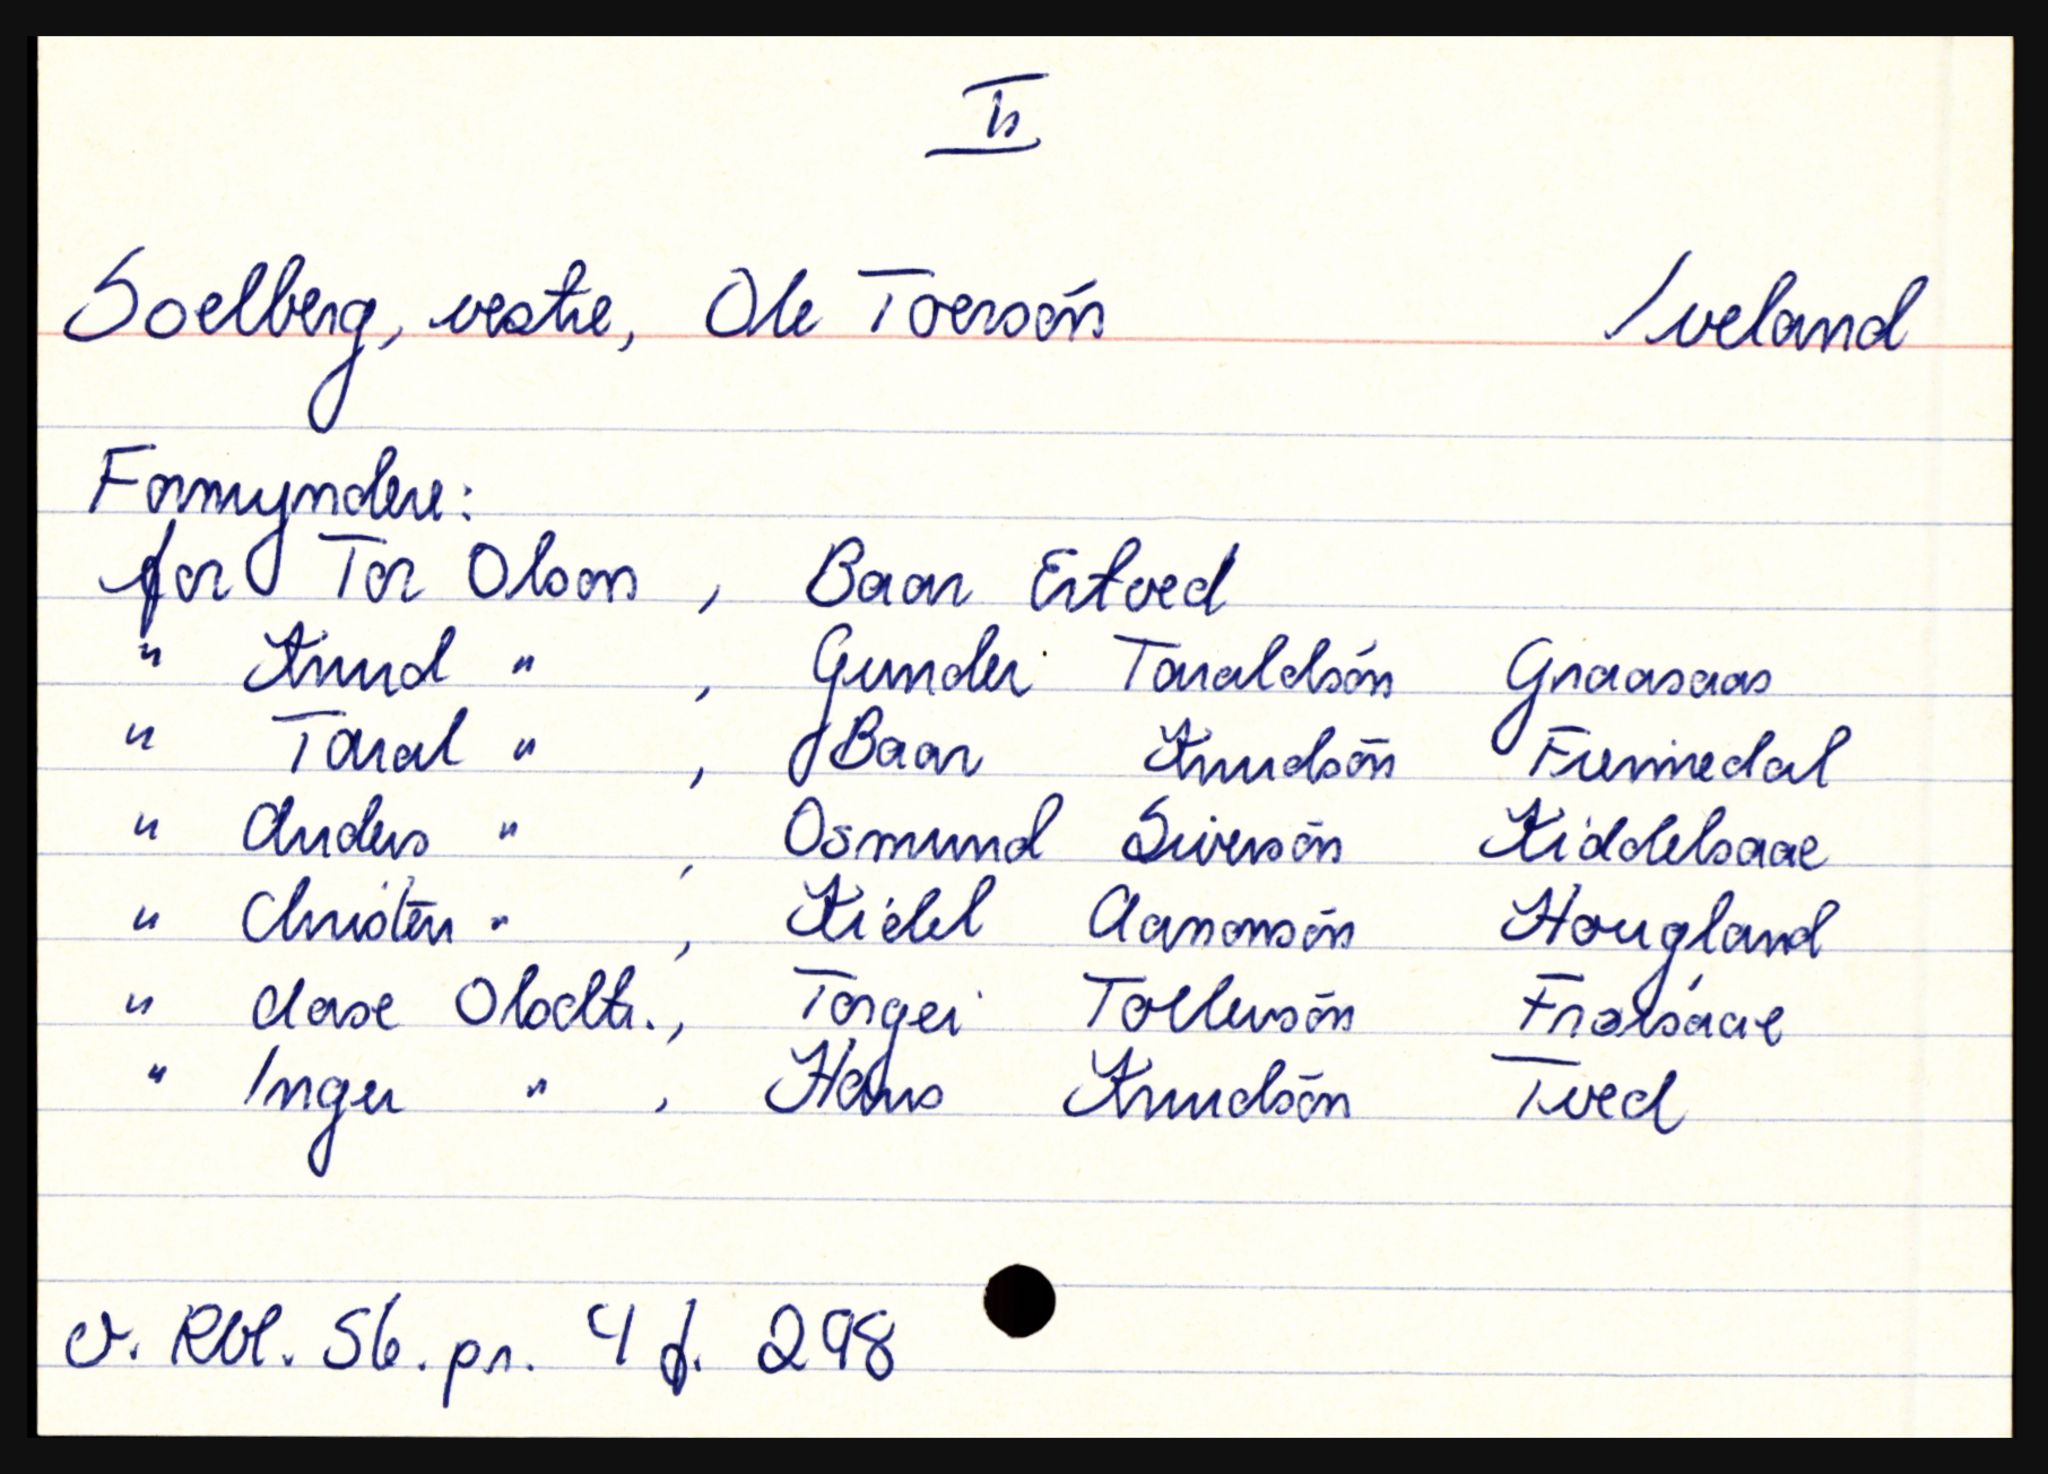 II
Soelberg, vestre, Ole Toersøn Iveland
Formyndere:
for Tor Olson, Baar Ertved
" Knud " , Gunder Taraldsøn Graasaas
" Taral " , Baar Knudsøn Frennedal
" Anders " , Osmund Siversøn Kiddelsaae
" Christen " , Kidel Aanonsøn Hougland
" Aase Olsdtr., Torgei Tollevsøn Frøisaae
" Inger " , Hans Knudsøn Tved
v. Rbl. Sk. pr. 4 f. 298